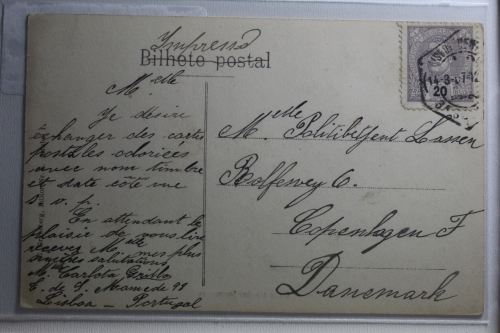 Impresso
Bilhete postal
Melle
Je désire
échanger des cartes
postales
avec nom timbre
et date côté vue
s. v. p.
En attendant le
plaisir de vous lire
recever Melle mes plus
salutations
M. Carlota
T. de S. Mamede 91
Lisboa - Portugal
Melle Politibetjent Lassen
6.
Copenhagen F
Danemark
14-8-07
20